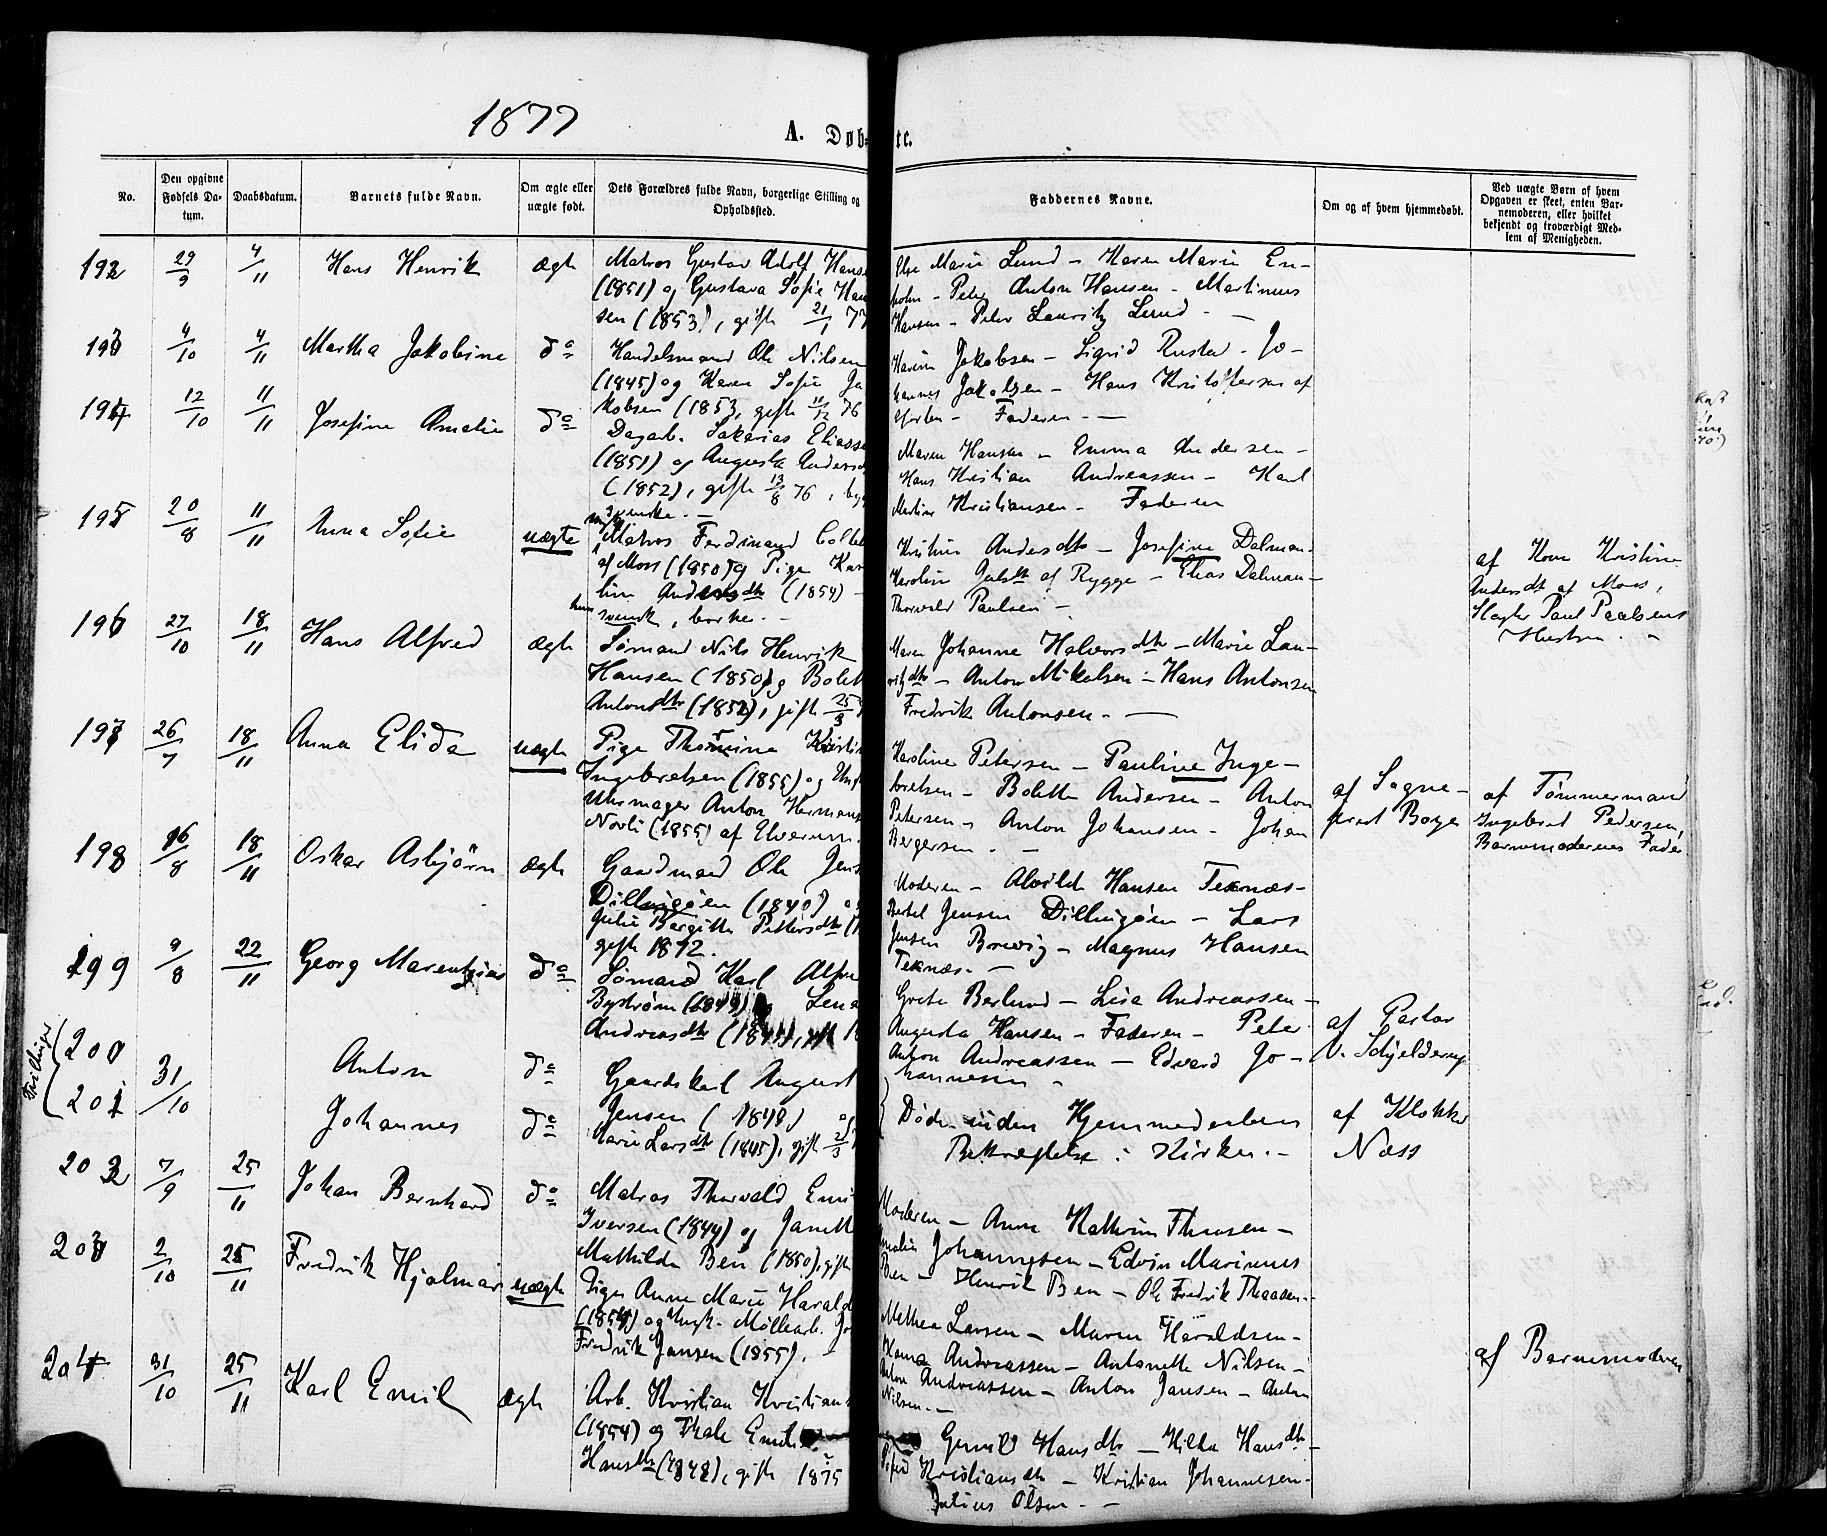 1877
A. Døb
tc.
No.
Den opgivne Fødsels Da-tum.
Daabsdatum.
Barnets fulde Navn.
Om ægte eller uægte født.
Dets Forældres fulde Navn, borgerlige Stilling og Opholdssted.
Faddernes Navne.
Om og af hvem hjemmedøbt.
Ved uægte Børn af hvem Opgaven er skeet, enten Bar-nemoderen, eller hvilket bekjendt og troværdigt Med-lem af Menigheden.
192 29/9 4/11 Hans Henrik ægte
Matros Gustav Adolf Hans
(1851) og Gustava Sofie Han
sen (1853), gifte 21/1 77
Else Marie Lund - Karen Marie En-
holm - Peter Anton Hansen - Martinius
Hansen - Peter Lauritz Lund -
193 4/10 4/11 Martha Jakobine do
Handelsmand Ole Nilsen
(1845) og Karen Sofie Ja
kobsen (1853, gifte 11/12 76
Karen Jakobsen - Sigrid Rustad - Jo-
hannes Jakobsen - Hans Kristoffersen af
Horten - Faderen -
194 12/10 11/11 Josefine Amalie do
Dagarb. Sakarias Eliass
(1851) og Augusta Andersd
(1852), gifte 13/8 76, beg
svenske. -
Maren Hansen - Emma Andersen -
Hans Kristian Andreassen - Karl
Martin Kristiansen - Faderen
195 20/8 11/11 Anna Sofie uægte
Matros Ferdinand Colb
af Moss (1850) og Pige Kar
line Andersdtr (1854) -
svensk, borte. -
Kristine Andersdtr - Josefine Dalman -
Karoline Julsdtr af Rygge - Elias Dalman -
Thorvald Paulsen -
af Kone Kristine
Andersdtr af Moss,
Slagter Paul Paulsens
Hustru. -
196 27/10 18/11 Hans Alfred ægte
Sømand Nils Henrik
Hansen (1850) og Bolett
Antonsdtr (1852), gifte 25/3
Maren Johanne Halvorsdtr - Marie Lau-
ritzdtr - Anton Mikelsen - Hans Antonsen
Fredrik Antonsen. -
197 26/7 18/11 Anna Elida uægte
Pige Thomine Kristin
Ingebretsen (1855) og Ungk
Uhrmager Anton Hermans
Novli (1855) af Elverum.
Karoline Petersen - Pauline Inge-
bretsen - Bolette Andersen - Anton
Petersen - Anton Johansen - Johan
Bergersen. -
af Sogne-
prest Borge
af Tømmermand
Ingebret Pedersen,
Barnemoderens Fader
198 16/8 18/11 Oskar Asbjørn ægte
Gaardmand Ole Jens
Dillingøen (1840) og
Julie Bergitte Pettersdtr (1
gifte 1872.
Moderen - Alvilde Hansen Teknæs -
Bertel Jensen Dillingøen - Lars
Jensen Brevig - Magnus Hansen
Teknæs. -
199 9/8 22/11 Georg Marentius do
Sømand Karl Alfre
Bystrøm (1849) Lena
Andreasdtr (1844), gift 18
Grete Berlund - Lisa Andreassen -
Augusta Hansen - Faderen - Peter
Anton Andreassen - Edvard Jo-
hannesen -
af Pastor
V. Schjelderup
Tvillinger
200 31/10 Anton do
201 Johannes do
Gaardskarl August
Jensen (1848) og
Marie Larsdtr (1845), gift 2/3
Døde uden Hjemmedaabens
Bekræftelse i Kirken. -
af Klokker
Næss
202 7/9 25/11 Johan Bernhard do
Matros Thorvald Emi
Iversen (1844) og Janett
Mathilde Ben (1850), gifte
Moderen - Anne Kathrin Thuesen -
Amalie Johannesen - Edvin Marinius
Ben - Henrik Ben - Ole Fredrik Thaasen. -
203 2/10 25/11 Fredrik Hjalmar uægte
Pige Anne Marie Harald
(1854) og Ungk. Møllearb. Jo
Fredrik Jansen (1855). -
Mathea Larsen - Maren Haraldsen -
Andreassen - Antonette Nilsen -
Anton Andreassen - Anton Jansen - Anton
Nilsen. -
af Barnemoderen
204 31/10 25/11 Karl Emil ægte
Arb. Kristian Kristians
(1854) og Thale Emilie
Hansdtr (1848), gifte 1875
Gunild Hansdtr - Hilda Hansdtr -
Kristiansdtr - Kristian Johannesen -
Julius Olsen. -